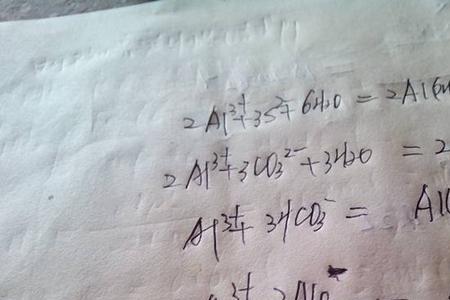 2Al³⁺+3S²⁻+6H₂O = 2Al(
2Al³⁺+3CO₃²⁻+3H₂O = 2
Al³⁺+3HCO₃⁻ = Al(